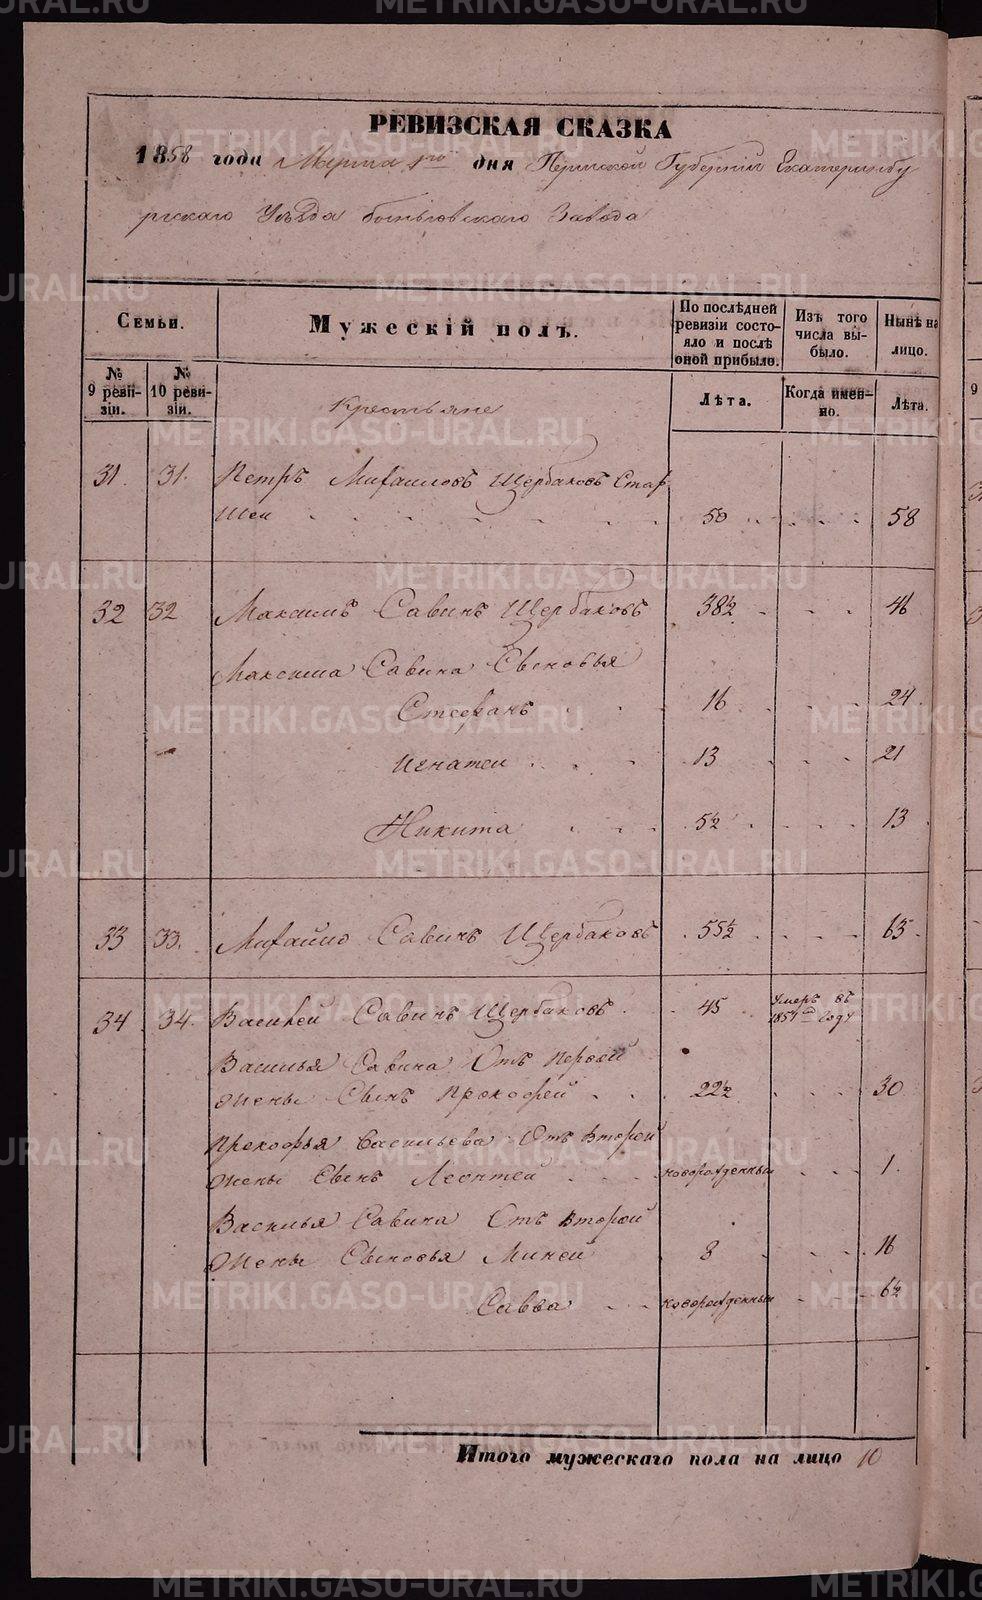 РЕВИЗСКАЯ СКАЗКА
1858 года Марта 1го дня Пермской Губернiи Екатеринбу
ргскаго Уѣзда Быньговскаго Завода
Семьи.
Мужескiй полъ.
По послѣдней ревизiи состояло и послѣ оной прибыло.
Изъ того числа выбыло.
Нынѣ на лицо.
№ 9 ревизiи.
№ 10 ревизiи.
Лѣта.
Когда именно.
Лѣта.
Крестьяне
31. 31. Петръ Михаиловъ Щербаковъ Стар
шеи 50 58
32 32 Максимъ Савинъ Щербаковъ 38½ 46
Максима Савина Сыновья
Стефанъ 16 24
Игнатеи 13 21
Никита 5½ 13
33 33. Михайло Савинъ Щербаковъ 55½ 63
34 34. Василей Савинъ Щербаковъ 45 Умеръ въ 1857м году
Василья Савина Отъ первой
жены Сынъ Прокофей 22½ 30
Прокофья Васильева Отъ второй
жены Сынъ Леонтей новорожденный 1
Василья Савина Отъ второй
жены Сыновья Миней 8 16
Савва новорожденный 6½
Итого мужескаго пола на лицо 10
METRIKI.GASO-URAL.RU